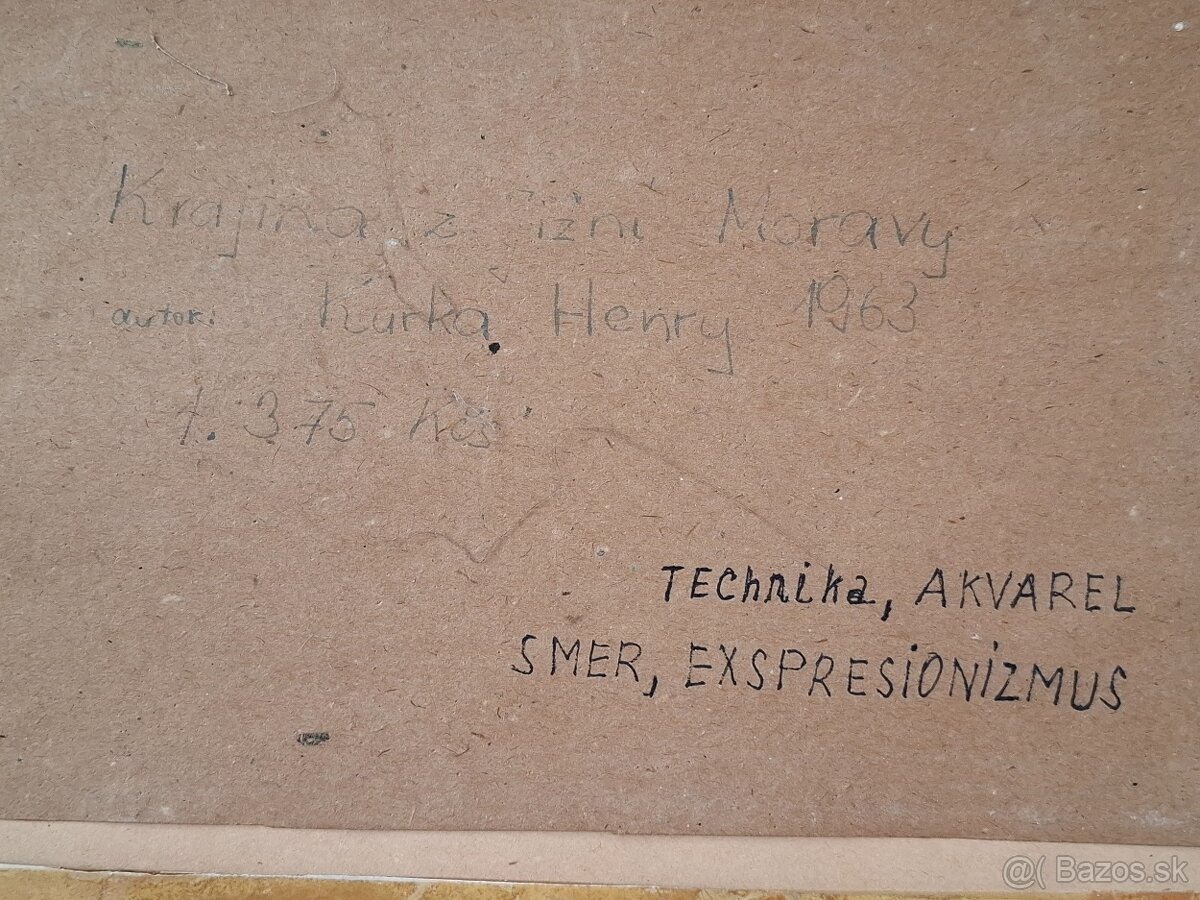 Krajina z jižní Moravy
autor: Kurka Henry 1963
t. 375 Kčs
TEChnika, AKVAREL
SMER, EXSPRESiONiZMUS
@( Bazos.sk